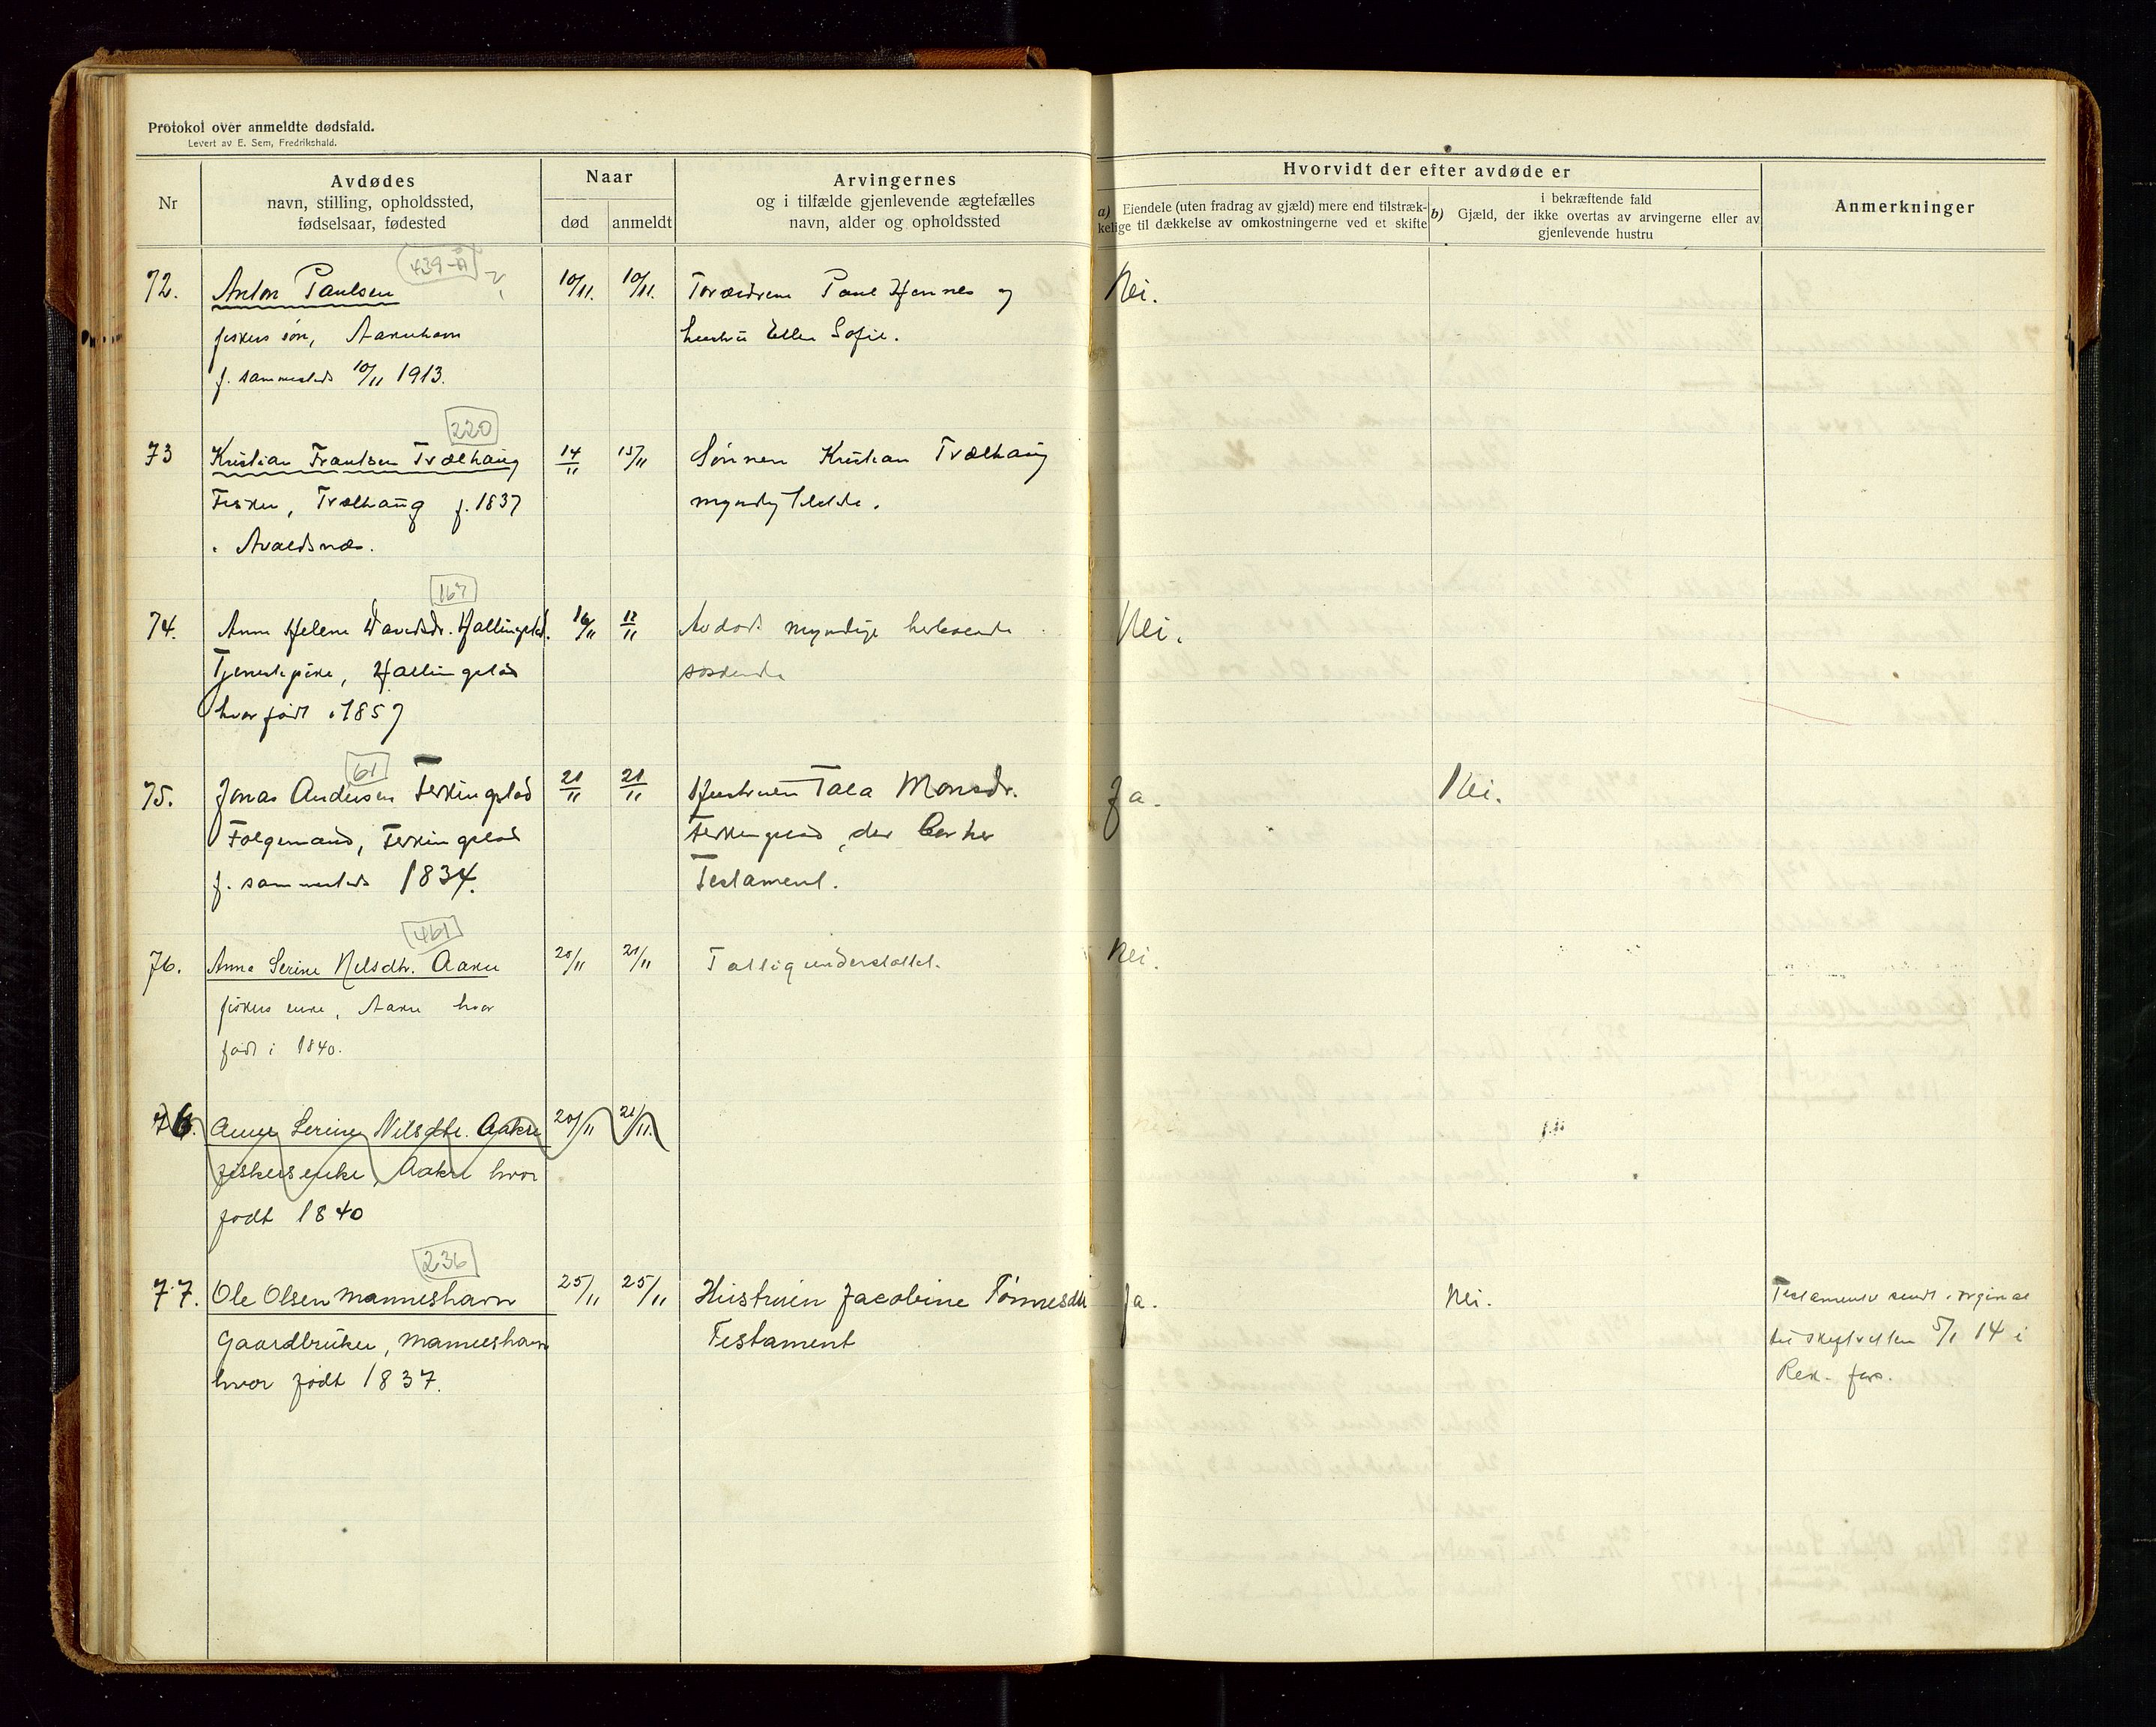 Protokol over anmeldte dødsfald.
Levert av E. Sem, Fredrikshald.
Nr
Avdødes
navn, stilling, opholdssted,
fødselsaar, fødested
Naar
død
anmeldt
Arvingernes
og i tilfælde gjenlevende ægtefælles
navn, alder og opholdssted
Hvorvidt der efter avdøde er
a) Eiendele (uten fradrag av gjæld) mere end tilstræk-
kelige til dækkelse av omkostningerne ved et skifte
b) i bekræftende fald
Gjæld, der ikke overtas av arvingerne eller av
gjenlevende hustru
Anmerkninger
439-A
72. Anton Paulsen 10/11. 10/11. Forældrene Paul Hennes og Nei.
fiskers søn, Aakrehavn hustru Ellen Sofie.
f. sammesteds 10/11 1913.
220
73 Kristian Frantsen Trælhaug 14/11 15/11 Sønnen Kristian Trælhaug
Fisker, Trælhaug f. 1837 myndig tilstede.
i Avaldsnæs.
167
74. Anne Helene Davidsdr. Hallingstad. 16/11 17/11 Avdødes myndige herboende Nei.
Tjenestepike, Hallingstad søskende
hvor født i 1857
61
75. Jonas Andersen Ferkingstad 21/11 21/11 Hustruen Tala Monsdr. Ja. Nei.
Folgemand, Ferkingstad Ferkingstad, der har
f. sammesteds 1834. Testament.
461
76. Anne Serine Nilsdtr. Aakre 20/11 21/11 Fattigunderstøttet. Nei.
fiskers enke, Aakre hvor
født i 1840.
76. Anne Serine Nilsdtr. Aakre 20/11 21/11.
fiskers enke, Aakre hvor
født 1840
236
77. Ole Olsen Manneshavn 25/11 25/11 Hustruen Jacobine Tønnesdtr Ja. Nei. Testamentet sendt i original
Gaardbruker, Manneshavn Testament til skifteretten 5/1 14 i
hvor født 1837. Rek. fors.